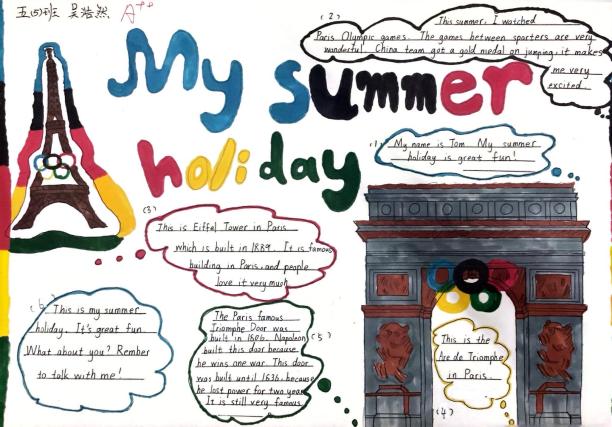 五(5)班 吴浩然 A++
My summer
holiday
(1)
My name is Tom. My summer
holiday is great fun!
(2)
This summer, I watched
Paris Olympic games. The games between sparters are very
wonderful. China team got a gold medal on jumping, it makes
me very
excited.
(3)
This is Eiffel Tower in Paris
which is built in 1889. It is famous
building in Paris, and people
love it very much
(4)
This is the
Arc de Triomphe
in Paris
(5)
The Paris famous
Triomphe Door was
built in 1806. Napoleon
built this door because
he wins one war. This door
was built until 1836, because
he lost power for two years
It is still very famous
(6)
This is my summer
holiday. It's great fun
What about you? Rember
to talk with me!